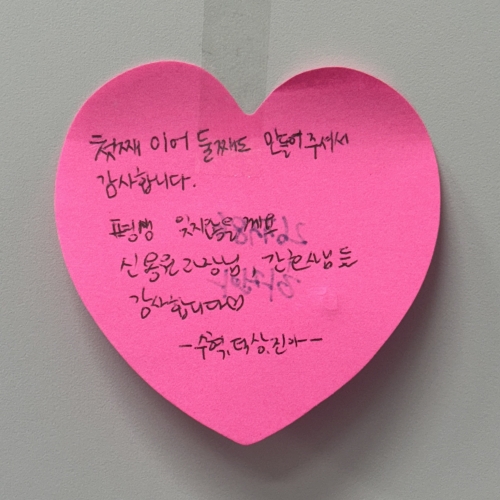 첫째 이어 둘째도 만들어주셔서
감사합니다.
평생 잊지않을게요
신용원 과장님, 간호사님들
감사합니다♡
-수혁, 덕상, 진아-